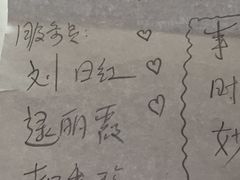 服务员:
刘日红
逯丽霞
事
时
妙